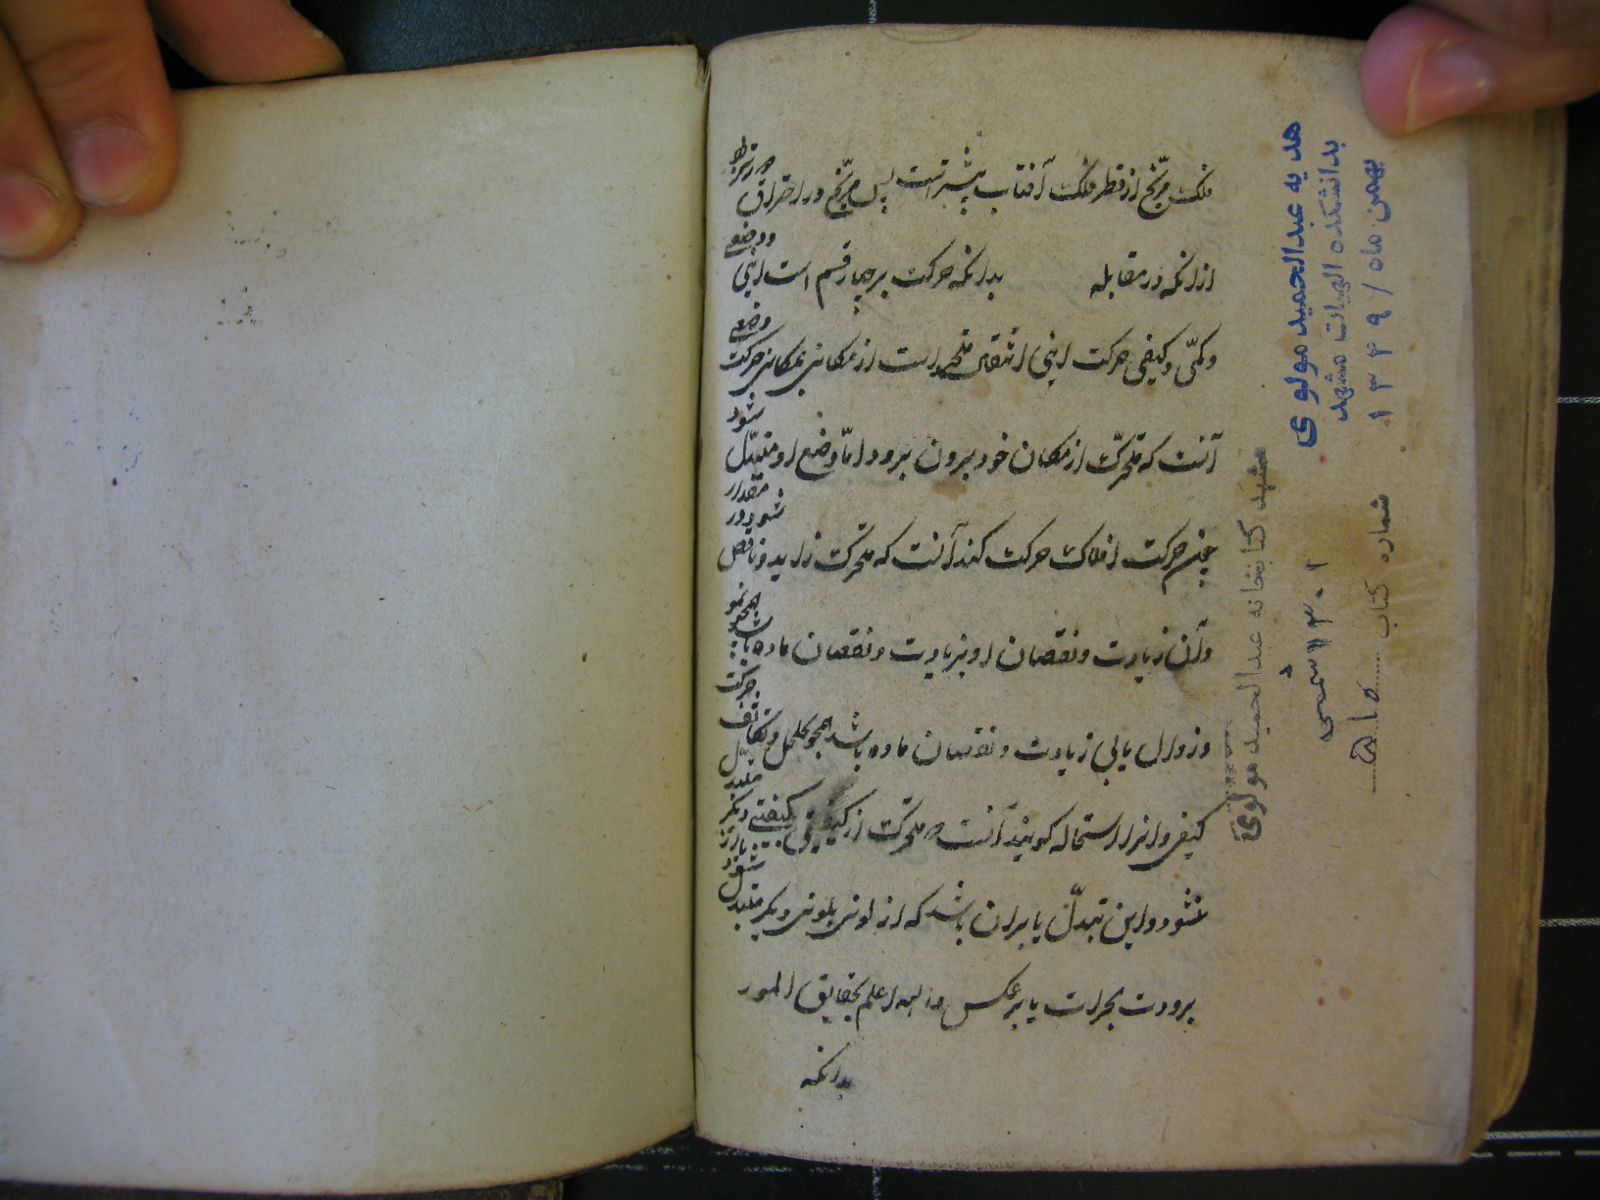 فلک مرّیخ از قطر فلک آفتاب بیشتر است پس مرّیخ در احتراق دورتر بود
از انکه در مقابله بدانکه حرکت بر چهار قسم است اینی و وضعی
و کمّی و کیفی حرکت اینی انتقال متحرک است از مکانی بمکانی حرکت وضعی
آنست که متحرّک از مکان خود برون نرود امّا وضع او متبدّل شود
چون حرکت افلاک حرکت کند آنست که متحرّک زاید و ناقص شود در مقدار
و آن زیادت و نقصان او بزیادت و نقصان ماده باشد همچو نمو
و زوال یا بی زیادت و نقصان ماده باشد همچو تخلخل و تکاثف حرکت
کیفی و انرا استحاله گویند آنست که متحرّک از کیفیتی بکیفیتی دیگر متبدّل
شود و این تبدّل یا بران باشد که از لونی بلونی دیگر متبدل شود یا از
برودت بحرارت یا برعکس والله اعلم بحقایق الامور
بدانکه
هدیه عبدالحمید مولوی
بدانشکده الهیات مشهد
بهمن ماه / ۱۳۴۹
مشهد کتابخانه عبدالحمید مولوی
شمسی
شماره کتاب